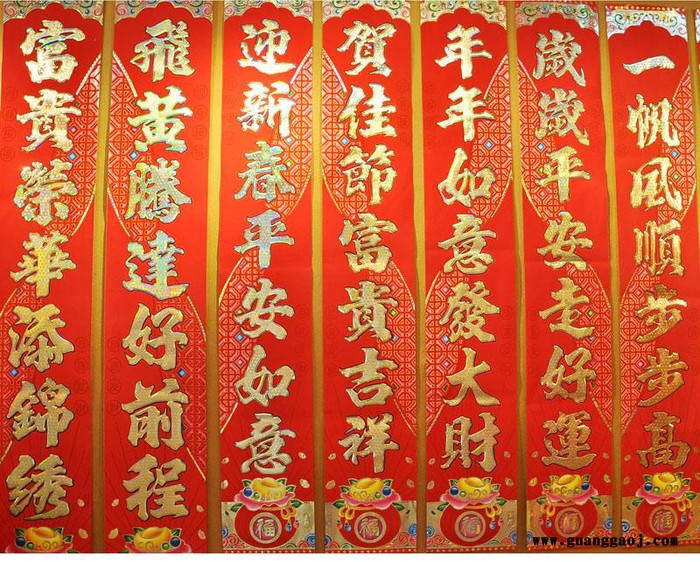 富貴榮華添錦綉
飛黃騰達好前程
迎新春平安如意
賀佳節富貴吉祥
年年如意發大財
歲歲平安走好運
一帆風順步步高
福
福
福
福
福
www.guanggaoj.com